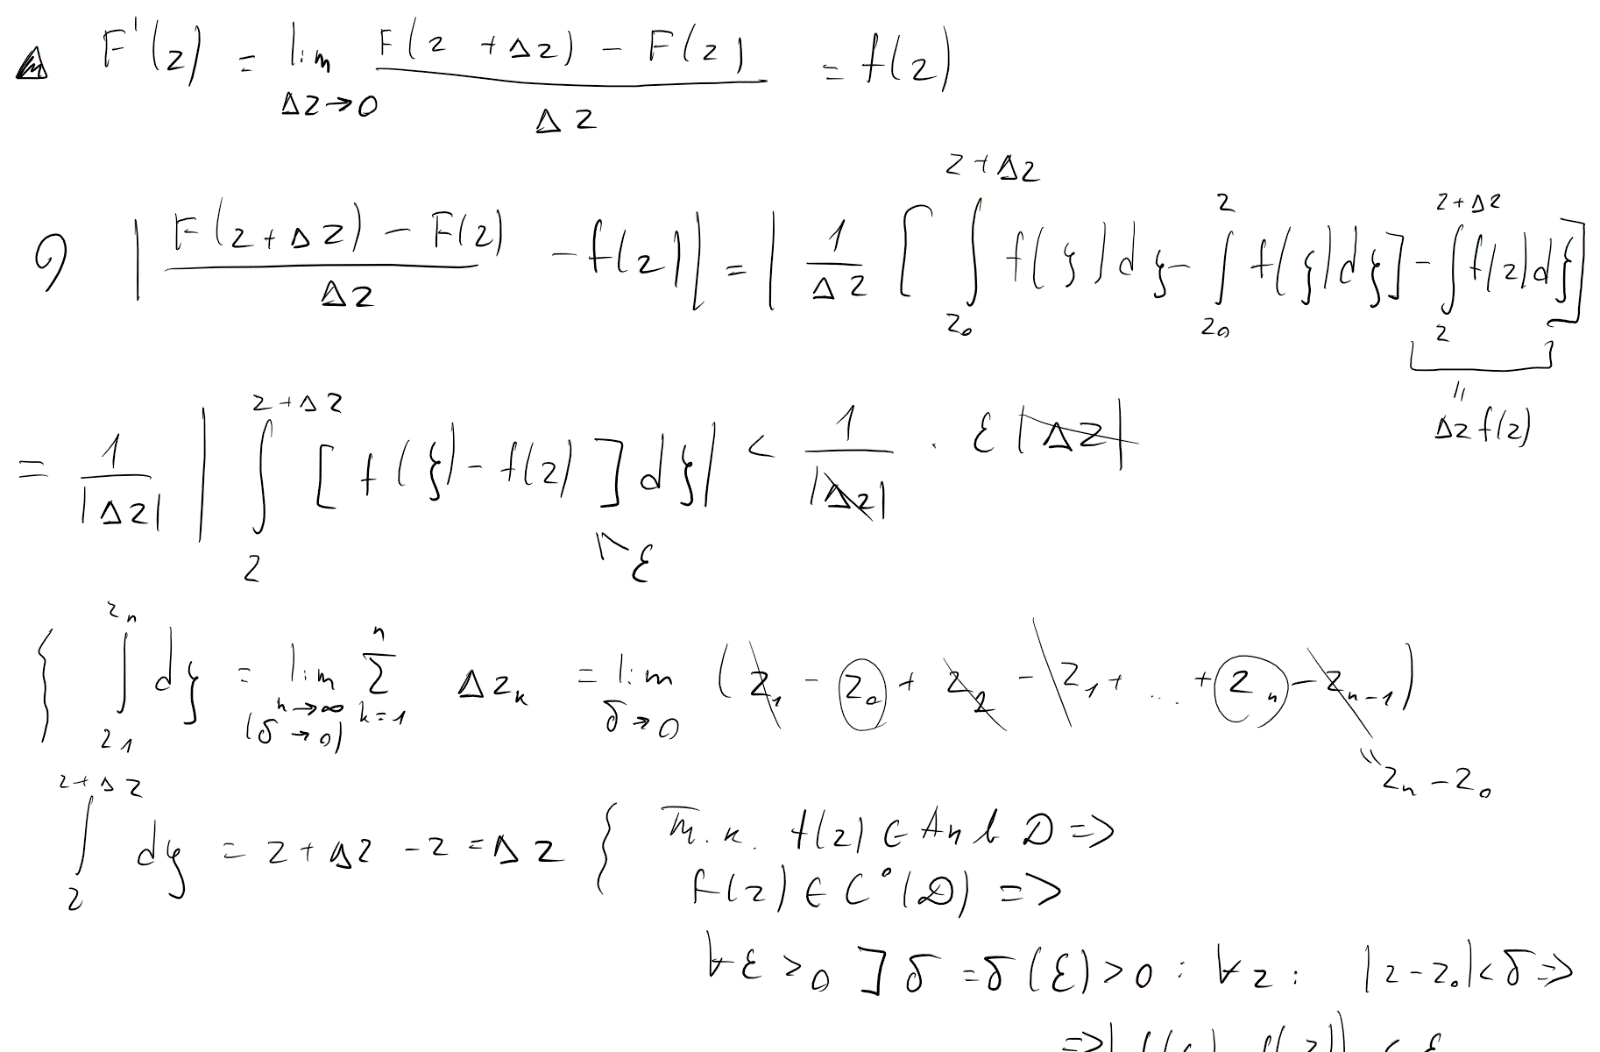 ▲ F'(z) = lim_{Δz→0} \frac{F(z+Δz) - F(z)}{Δz} = f(z)
| \frac{F(z+Δz) - F(z)}{Δz} - f(z) | = | \frac{1}{Δz} [ ∫_{z_0}^{z+Δz} f(ξ)dξ - ∫_{z_0}^{z} f(ξ)dξ ] - ∫_{z}^{z+Δz} f(z)dξ ]
" Δz f(z)
= \frac{1}{|Δz|} | ∫_{z}^{z+Δz} [ f(ξ) - f(z) ] dξ | < \frac{1}{|Δz|} · ε |Δz|
^ ε
{ ∫_{z_1}^{z_n} dξ = lim_{n→∞ (δ→0)} ∑_{k=1}^{n} Δz_k = lim_{δ→0} ( z_1 - z_0 + z_2 - z_1 + .. + z_n - z_{n-1} )
" z_n - z_0
∫_{z}^{z+Δz} dξ = z + Δz - z = Δz } т.к. f(z) ∈ A в D =>
f(z) ∈ C°(D) =>
∀ ε > 0 ∃ δ = δ(ε) > 0 : ∀ z : |z - z_0| < δ =>